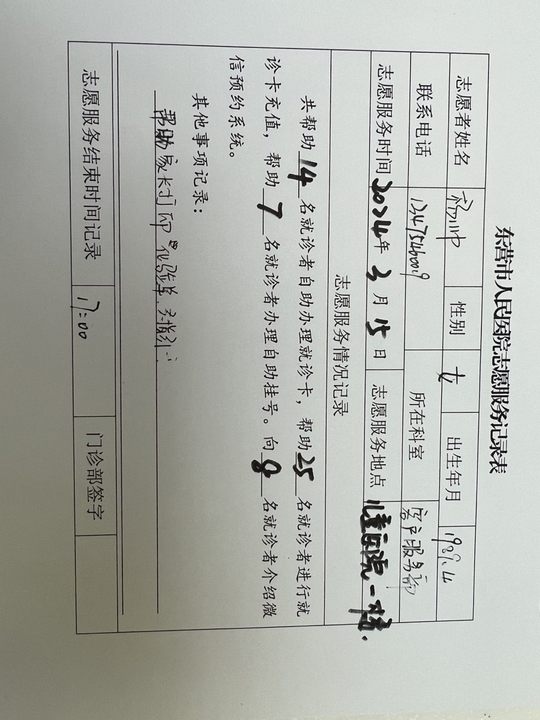 东营市人民医院志愿服务记录表
志愿者姓名 性别 女 出生年月 1989.4
联系电话 13475460009 所在科室 客户服务部
志愿服务时间 2024年3月15日 志愿服务地点 儿童医院一楼.
志愿服务情况记录
共帮助14名就诊者自助办理就诊卡，帮助25名就诊者进行就
诊卡充值，帮助7名就诊者办理自助挂号。向8名就诊者介绍微
信预约系统。
其他事项记录：
帮助家长打印化验单
志愿服务结束时间记录 17:00 门诊部签字